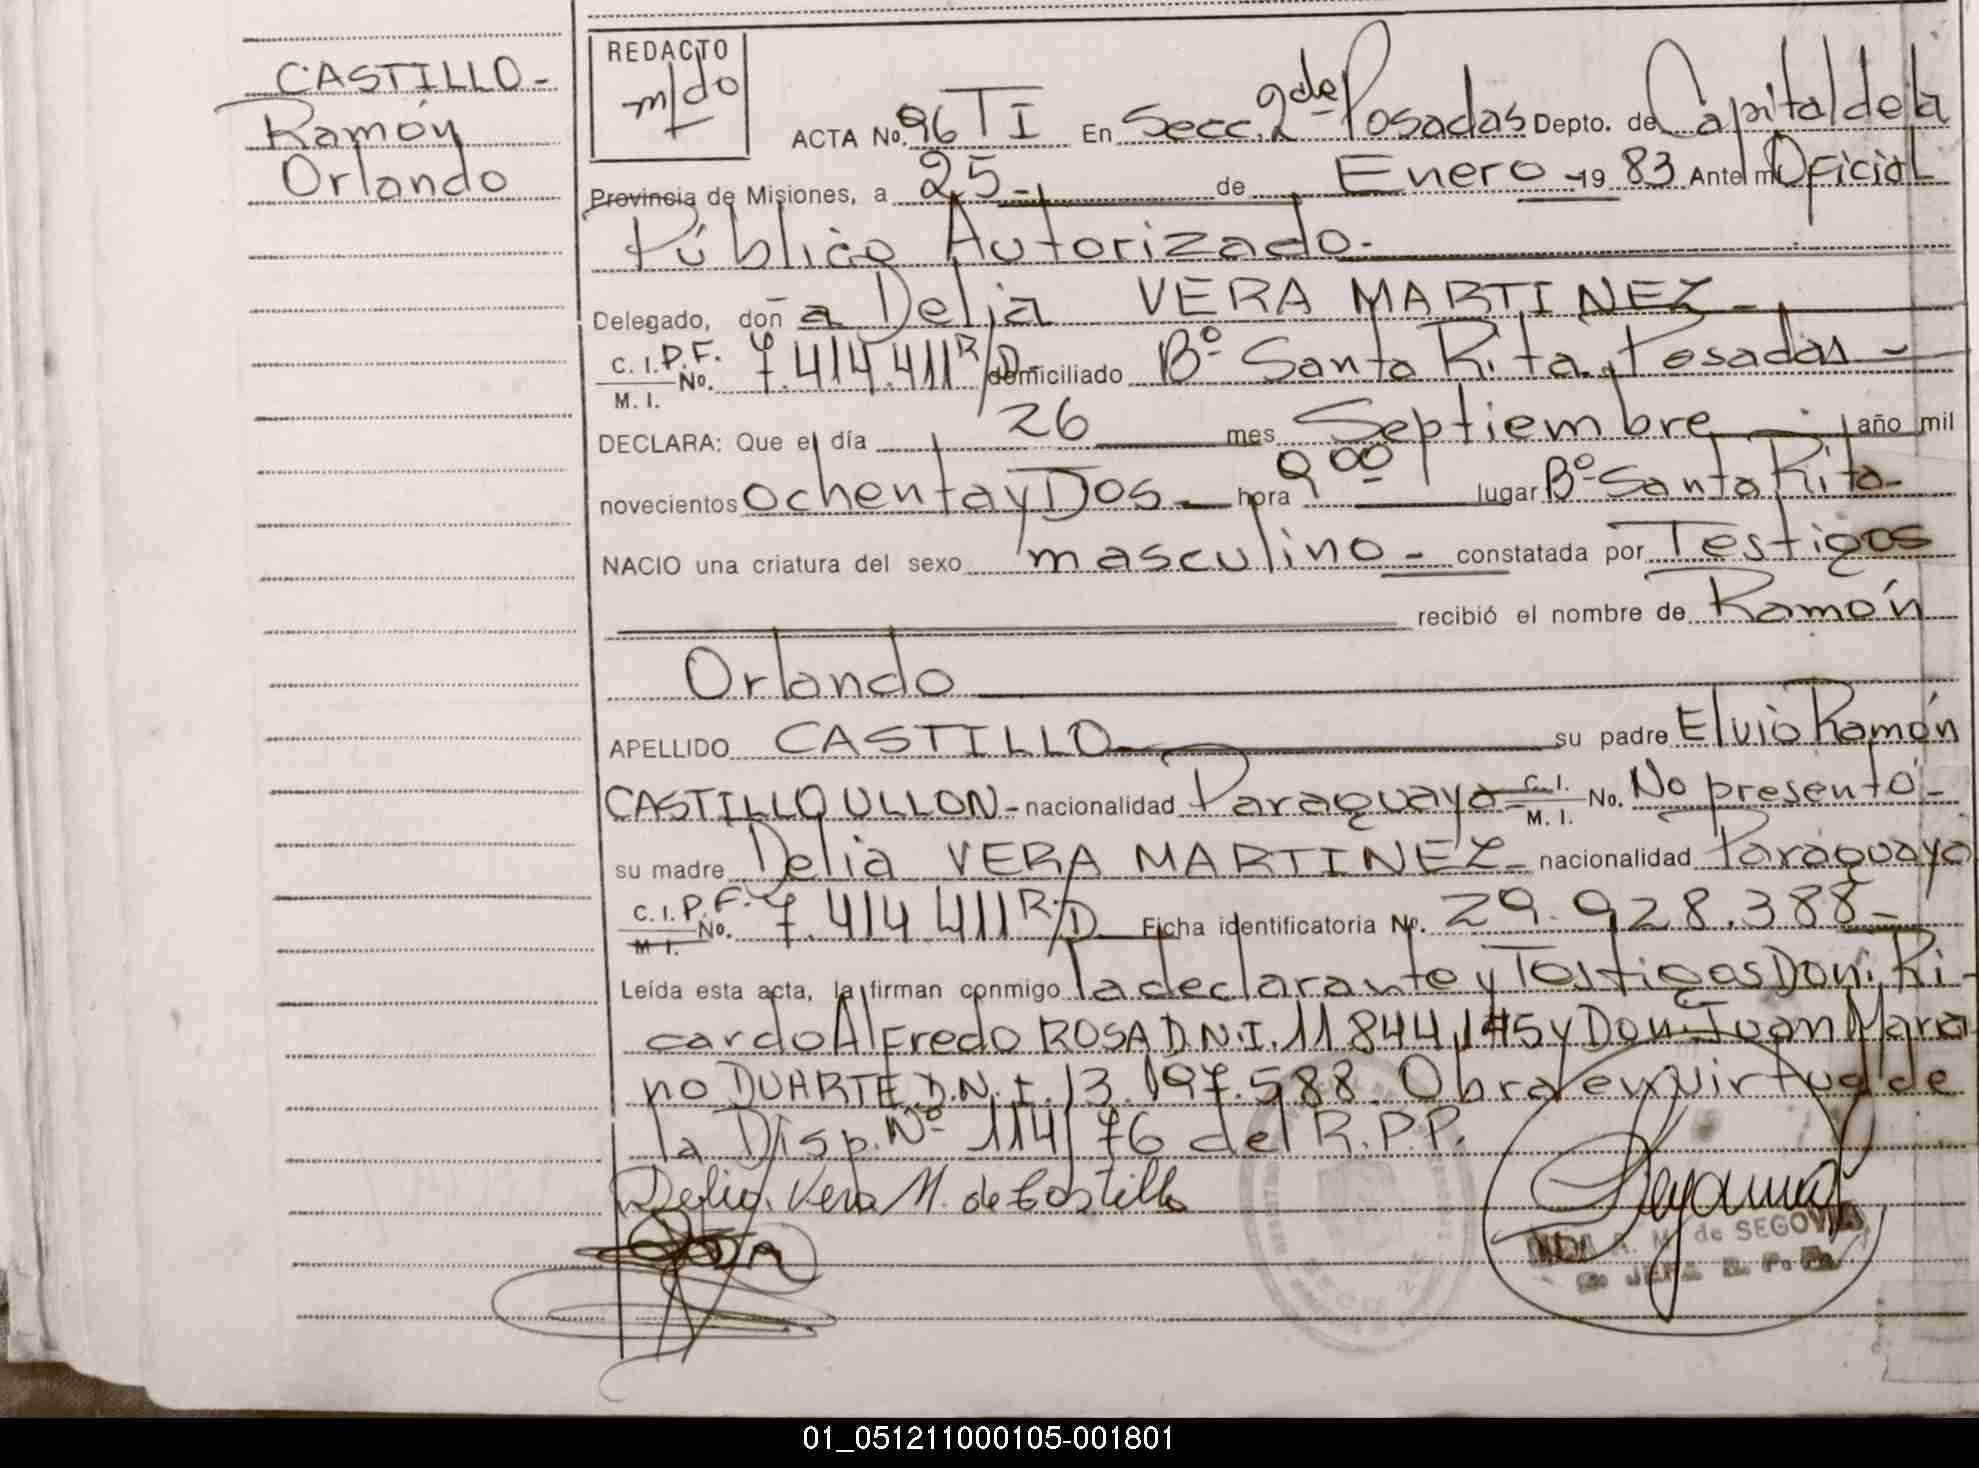 CASTILLO-
Ramón
Orlando
REDACTO
ACTA No. 96 TI En Secc. 2da de Posadas Depto. de Capital de la
Provincia de Misiones, a 25- de Enero - 19 83 Ante mi Oficial
Público Autorizado-
Delegado, don a Delia VERA MARTINEZ-
C. I. P.F. No. 7.414.411 R/D domiciliado Bº Santa Rita, Posadas-
M. I.
DECLARA: Que el día 26 mes Septiembre año mil
novecientos ochenta y Dos- hora 9 00 lugar Bº Santa Rita-
NACIO una criatura del sexo masculino- constatada por Testigos
recibió el nombre de Ramón
Orlando
APELLIDO CASTILLO su padre Elvio Ramón
CASTILLO ULLON- nacionalidad Paraguaya C. I. No. No presentó-
M. I.
su madre Delia VERA MARTINEZ- nacionalidad Paraguaya
C. I. P.F. No. 7.414 411 R/D Ficha identificatoria No. 29.928.388-
M I.
Leída esta acta, la firman conmigo la declarante y Testigos Don: Ri-
cardo Alfredo ROSA D.N.I. 11 844.145 y Don: Juan Maria
no DUARTE D.N.I. 13.197.588. Obra en virtud de
la Disp. Nº 114/76 del R.P.P.
Delia Vera M. de Castillo
M. de SEGOVIA
JEFA R. P. P.
01_051211000105-001801